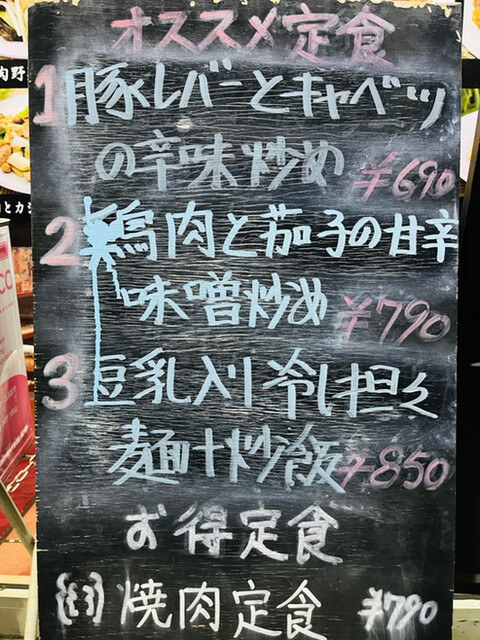 オススメ定食
1 豚レバーとキャベツ
の辛味炒め ¥690
2 鶏肉と茄子の甘辛
味噌炒め ¥790
3 豆乳入り冷し担々
麺+炒飯 ¥850
お得定食
焼肉定食 ¥790